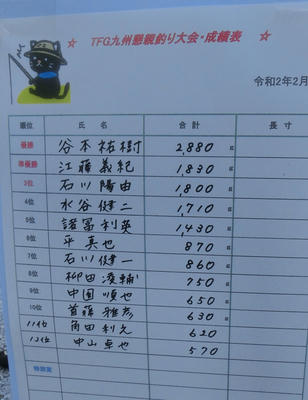 ☆ TFG九州懇親釣り大会・成績表 ☆
令和2年2月
順位 氏名 合計 長寸
優勝 谷本祐樹 2,880 g
準優勝 江藤義紀 1,830 g
3位 石川陽由 1,800 g
4位 水谷健二 1,710 g
5位 諸冨利英 1,430 g
6位 平真也 870 g
7位 石川健一 860 g
8位 柳田凌輔 750 g
9位 中国順也 650 g
10位 首藤雅彦 630 g
11位 角田利久 620
12位 中山卓也 570
特別賞